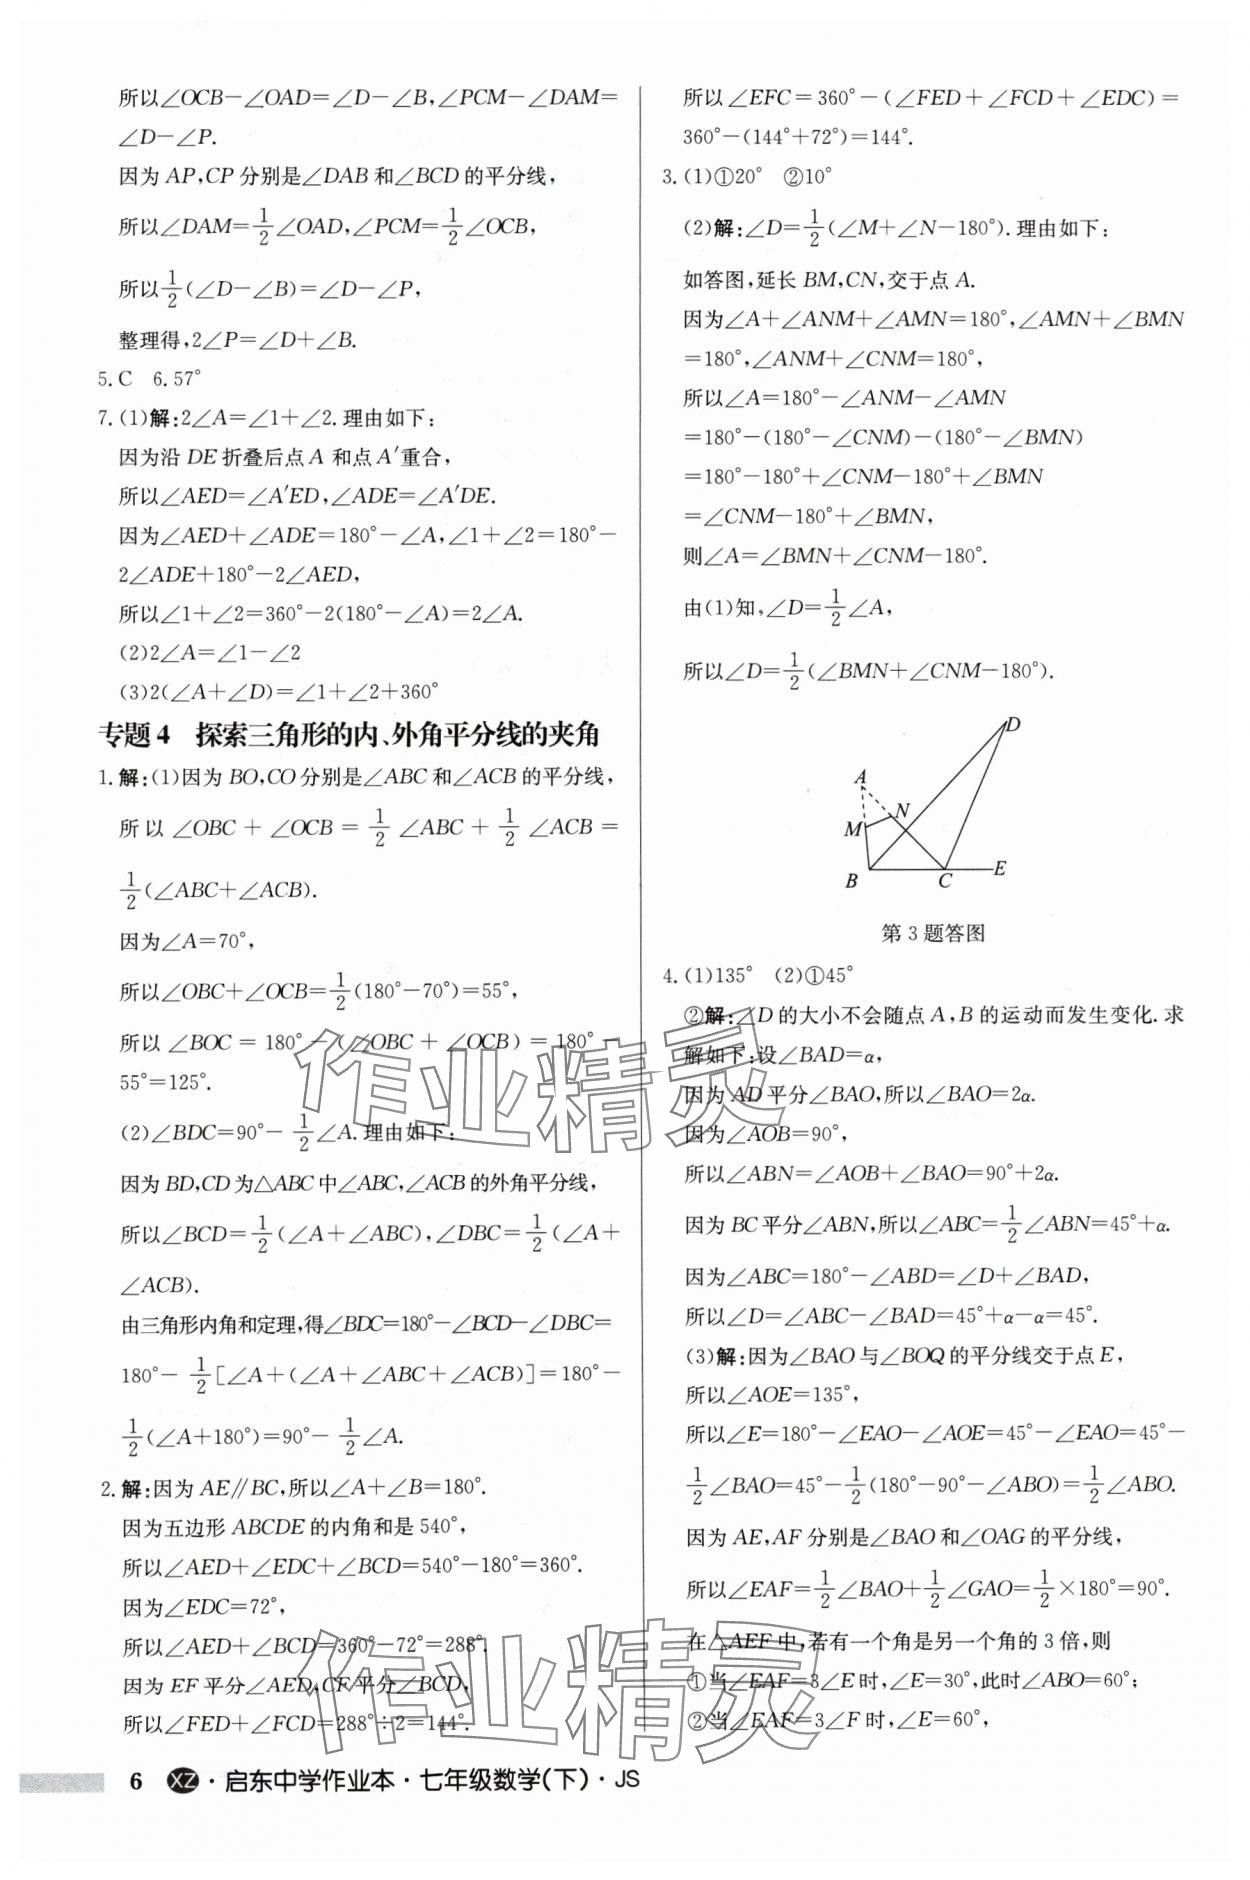 所以∠OCB−∠OAD=∠D−∠B,∠PCM−∠DAM=
∠D−∠P.
因为 AP,CP 分别是∠DAB 和∠BCD 的平分线,
所以∠DAM=1/2∠OAD,∠PCM=1/2∠OCB,
所以1/2(∠D−∠B)=∠D−∠P,
整理得,2∠P=∠D+∠B.
5.C 6.57°
7.(1)解:2∠A=∠1+∠2.理由如下:
因为沿 DE 折叠后点 A 和点 A′重合,
所以∠AED=∠A′ED,∠ADE=∠A′DE.
因为∠AED+∠ADE=180°−∠A,∠1+∠2=180°−
2∠ADE+180°−2∠AED,
所以∠1+∠2=360°−2(180°−∠A)=2∠A.
(2)2∠A=∠1−∠2
(3)2(∠A+∠D)=∠1+∠2+360°
专题 4 探索三角形的内、外角平分线的夹角
1.解:(1)因为 BO,CO 分别是∠ABC 和∠ACB 的平分线,
所以 ∠OBC + ∠OCB = 1/2 ∠ABC + 1/2 ∠ACB =
1/2(∠ABC+∠ACB).
因为∠A=70°,
所以∠OBC+∠OCB=1/2(180°−70°)=55°,
所以 ∠BOC = 180° − (∠OBC + ∠OCB) = 180° −
55°=125°.
(2)∠BDC=90°− 1/2∠A.理由如下:
因为 BD,CD 为△ABC 中∠ABC,∠ACB 的外角平分线,
所以∠BCD=1/2(∠A+∠ABC),∠DBC=1/2(∠A+
∠ACB).
由三角形内角和定理,得∠BDC=180°−∠BCD−∠DBC=
180°− 1/2[∠A+(∠A+∠ABC+∠ACB)]=180°−
1/2(∠A+180°)=90°− 1/2∠A.
2.解:因为 AE∥BC,所以∠A+∠B=180°.
因为五边形 ABCDE 的内角和是 540°,
所以∠AED+∠EDC+∠BCD=540°−180°=360°.
因为∠EDC=72°,
所以∠AED+∠BCD=360°−72°=288°.
因为 EF 平分∠AED,CF 平分∠BCD,
所以∠FED+∠FCD=288°÷2=144°.
所以 ∠EFC = 360° − (∠FED + ∠FCD + ∠EDC) =
360°−(144°+72°)=144°.
3.(1)①20° ②10°
(2)解:∠D=1/2(∠M+∠N−180°).理由如下:
如答图,延长 BM,CN,交于点 A.
因为∠A+∠ANM+∠AMN=180°,∠AMN+∠BMN
=180°,∠ANM+∠CNM=180°,
所以∠A=180°−∠ANM−∠AMN
=180°−(180°−∠CNM)−(180°−∠BMN)
=180°−180°+∠CNM−180°+∠BMN
=∠CNM−180°+∠BMN,
则∠A=∠BMN+∠CNM−180°.
由(1)知,∠D=1/2∠A,
所以∠D=1/2(∠BMN+∠CNM−180°).
D
A
N
M
B C E
第 3 题答图
4.(1)135° (2)①45°
②解:∠D 的大小不会随点 A,B 的运动而发生变化.求
解如下:设∠BAD=α,
因为 AD 平分∠BAO,所以∠BAO=2α.
因为∠AOB=90°,
所以∠ABN=∠AOB+∠BAO=90°+2α.
因为 BC 平分∠ABN,所以∠ABC=1/2∠ABN=45°+α.
因为∠ABC=180°−∠ABD=∠D+∠BAD,
所以∠D=∠ABC−∠BAD=45°+α−α=45°.
(3)解:因为∠BAO 与∠BOQ 的平分线交于点 E,
所以∠AOE=135°,
所以∠E=180°−∠EAO−∠AOE=45°−∠EAO=45°−
1/2∠BAO=45°−1/2(180°−90°−∠ABO)=1/2∠ABO.
因为 AE,AF 分别是∠BAO 和∠OAG 的平分线,
所以∠EAF=1/2∠BAO+1/2∠GAO=1/2×180°=90°.
在△AEF 中,若有一个角是另一个角的 3 倍,则
①当∠EAF=3∠E 时,∠E=30°,此时∠ABO=60°;
②当∠EAF=3∠F 时,∠E=60°,
作业精灵
作业精灵
6 XZ·启东中学作业本·七年级数学(下)·JS